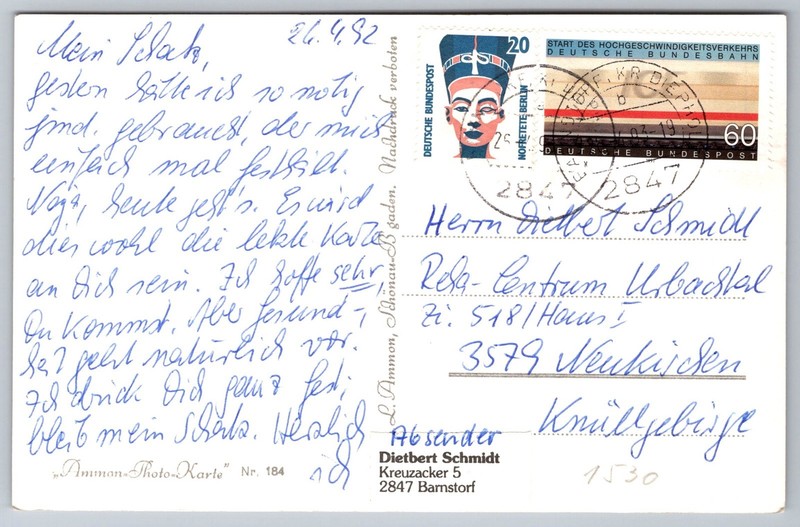 24.4.92
Mein Schatz,
gestern hätte ich so nötig
jmd. gebraucht, der mich
einfach mal festhält.
Naja, heute geht's. Es wird
dies wohl die letzte Karte
an Dich sein. Ich hoffe sehr,
Du kommst. Aber Gesund-
heit geht natürlich vor.
Ich drück Dich ganz fest,
bleib mein Schatz. Herzlich
ich
„Ammon-Photo-Karte" Nr. 184
L. Ammon, Schönau-B'gaden, Nachdruck verboten
20
DEUTSCHE BUNDESPOST
NOFRETETE BERLIN
START DES HOCHGESCHWINDIGKEITSVERKEHRS
DEUTSCHE BUNDESBAHN
60
DEUTSCHE BUNDESPOST
KR DIEPH
b
2847
2847
Herrn Dietbert Schmidt
Reha-Centrum Urbachtal
Zi. 518/Haus I
3579 Neukirchen
Knüllgebirge
Absender
Dietbert Schmidt
Kreuzacker 5
2847 Barnstorf
1530